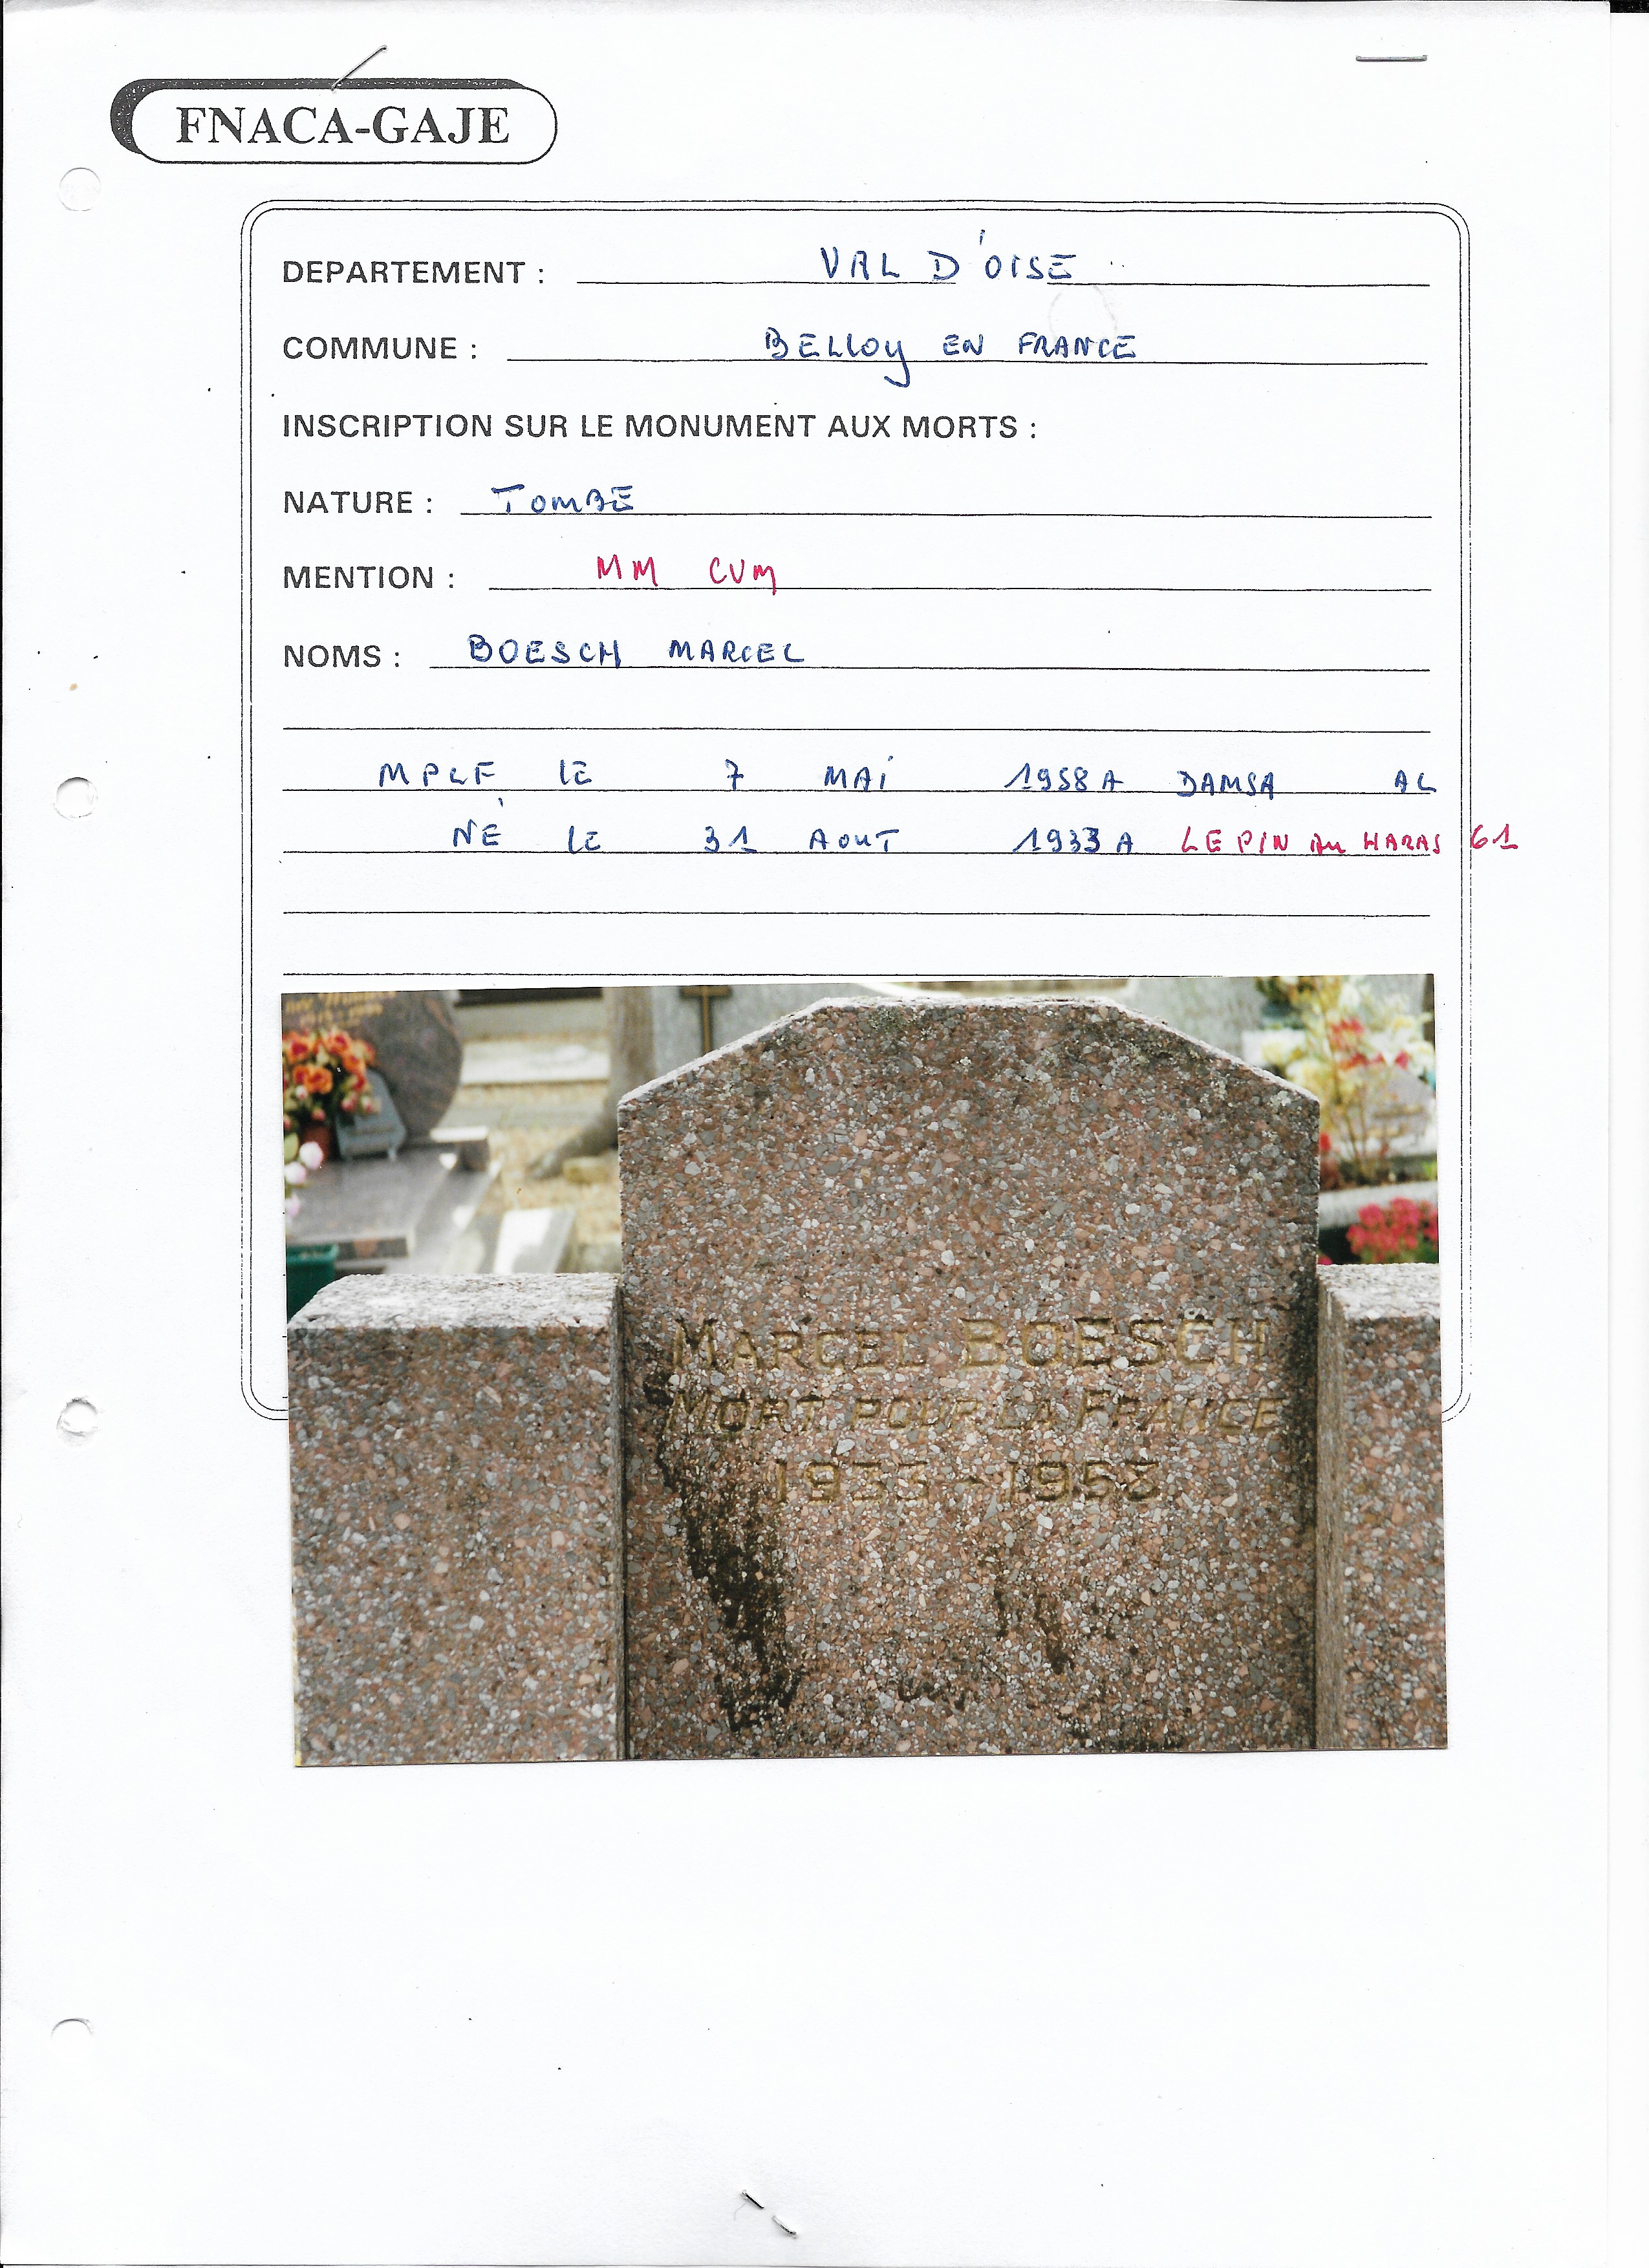 FNACA-GAJE
DEPARTEMENT : VAL D'OISE
COMMUNE : BELLOY EN FRANCE
INSCRIPTION SUR LE MONUMENT AUX MORTS :
NATURE : TOMBE
MENTION : MM CVM
NOMS : BOESCH MARCEL
MPLF LE 7 MAI 1958 A DAMSA AL
NÉ LE 31 AOUT 1933 A LE PIN AU HARAS 61
MARCEL BOESCH
MORT POUR LA FRANCE
1933-1958